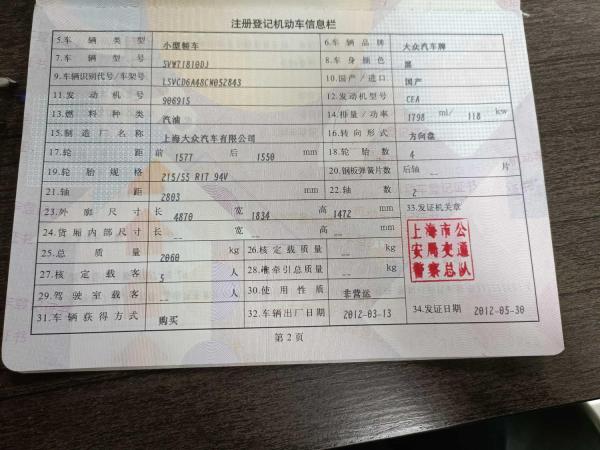 注册登记机动车信息栏
5.车辆类型 小型轿车 6.车辆品牌 大众汽车牌
7.车辆型号 SVW71810DJ 8.车身颜色 黑
9.车辆识别代号/车架号 LSVCD6A48CN052843 10.国产/进口 国产
11.发动机号 906915 12.发动机型号 CEA
13.燃料种类 汽油 14.排量/功率 1798 ml/ 118 kw
15.制造厂名称 上海大众汽车有限公司 16.转向形式 方向盘
17.轮距 前 1577 后 1550 mm 18.轮胎数 4
19.轮胎规格 215/55 R17 94V 20.钢板弹簧片数 后轴 -- 片
21.轴距 2803 mm 22.轴数 2
23.外廓尺寸 长 4870 宽 1834 高 1472 mm 33.发证机关章
24.货厢内部尺寸 长 -- 宽 -- 高 -- mm
上海市公
安局交通
警察总队
25.总质量 2060 kg 26.核定载质量 -- kg
27.核定载客 5 人 28.准牵引总质量 -- kg
29.驾驶室载客 -- 人 30.使用性质 非营运
31.车辆获得方式 购买 32.车辆出厂日期 2012-03-13 34.发证日期 2012-05-30
第2页